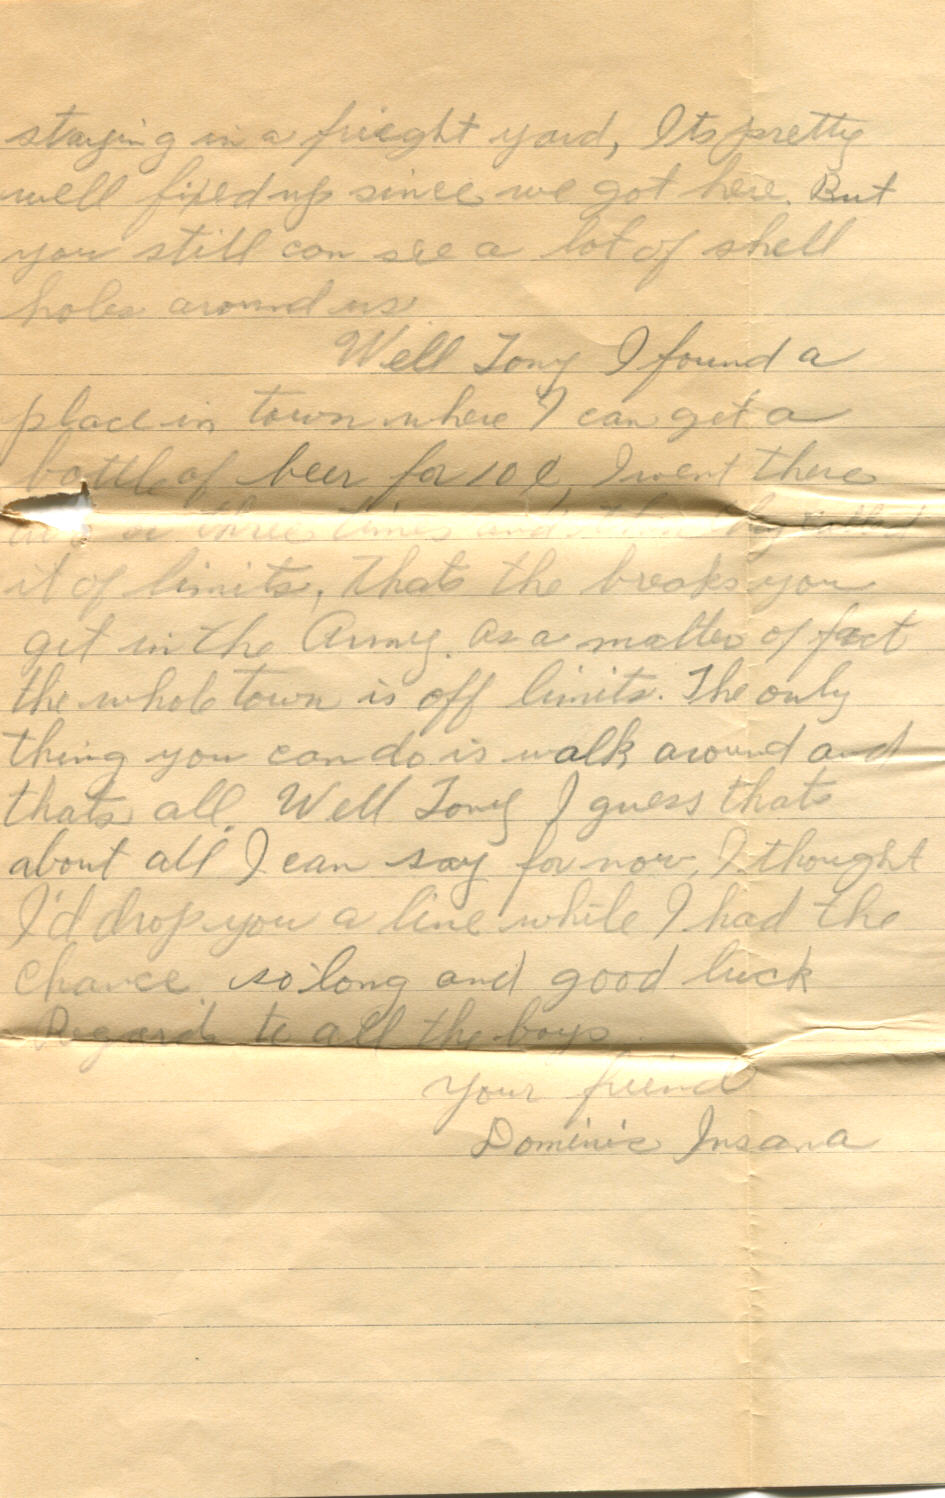 staying in a frieght yard, Its pretty
well fixed up since we got here. But
you still can see a lot of shell
holes around us
Well Tony I found a
place in town where I can get a
bottle of beer for 10¢, I went there
two or three times and then they called
it of limits, thats the breaks you
get in the Army. as a matter of fact
the whole town is off limits. The only
thing you can do is walk around and
thats all. Well Tony I guess thats
about all I can say for now, I thought
I'd drop you a line while I had the
chance so long and good luck
Regards to all the boys
Your friend
Dominic Insana